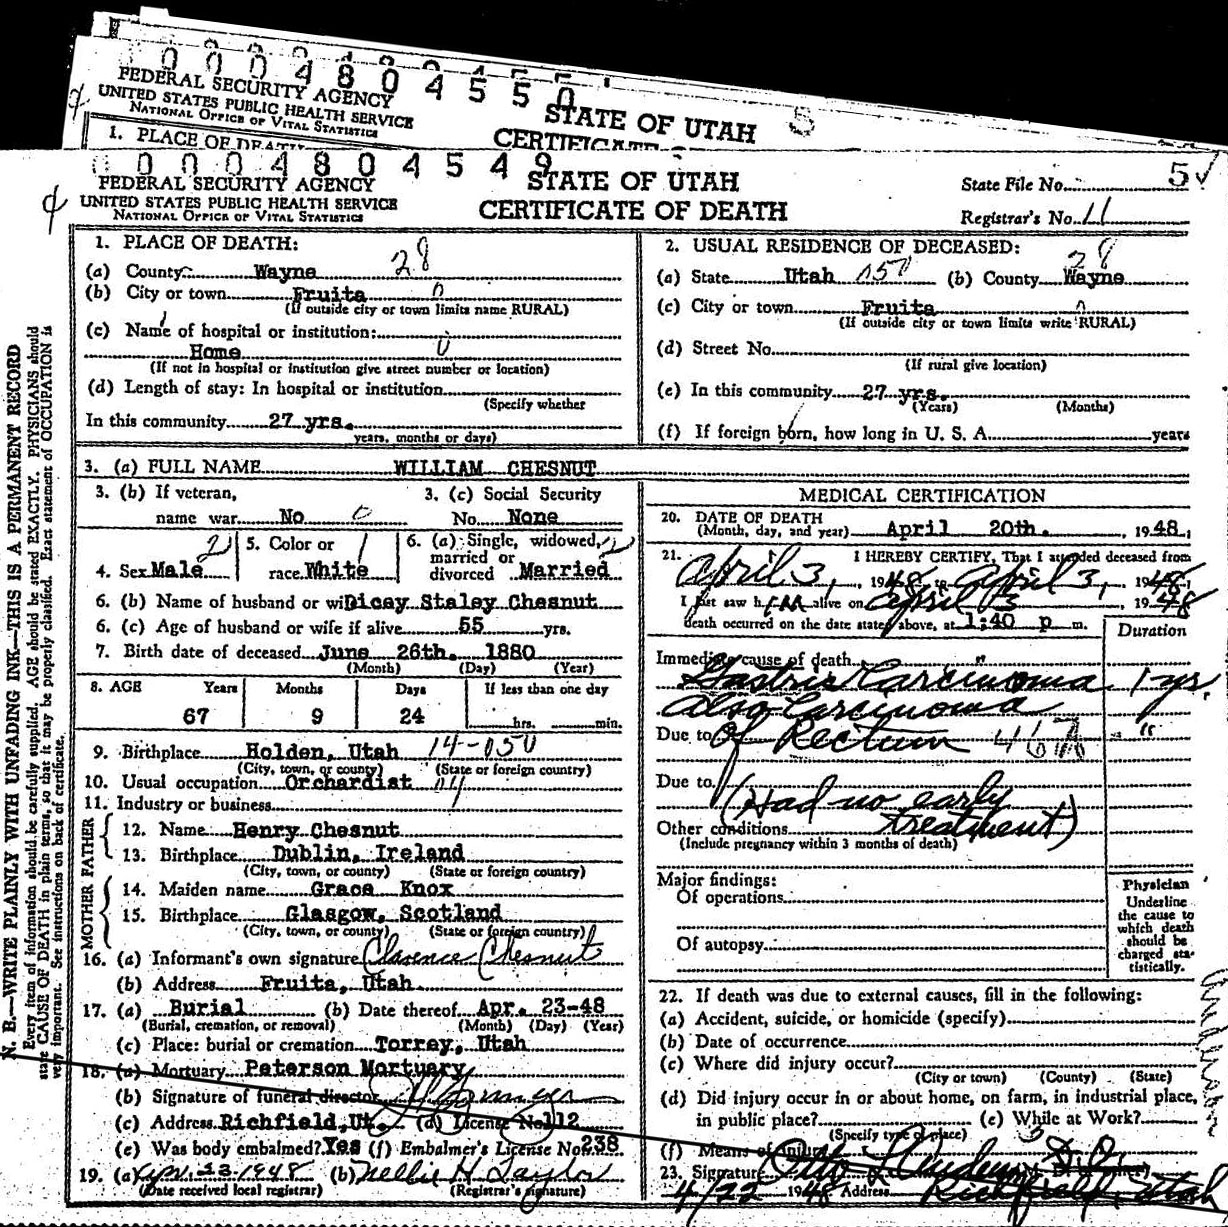 0 0 0 4 8 0 4 5 5 0
FEDERAL SECURITY AGENCY
UNITED STATES PUBLIC HEALTH SERVICE
NATIONAL OFFICE OF VITAL STATISTICS
STATE OF UTAH 5
1. PLACE OF DEATH
0 0 0 4 8 0 4 5 4 9
FEDERAL SECURITY AGENCY
UNITED STATES PUBLIC HEALTH SERVICE
NATIONAL OFFICE OF VITAL STATISTICS
STATE OF UTAH
CERTIFICATE OF DEATH
State File No. 5
Registrar's No. 11
N. B.—WRITE PLAINLY WITH UNFADING INK—THIS IS A PERMANENT RECORD
Every item of information should be carefully supplied. AGE should be stated EXACTLY. PHYSICIANS should
state CAUSE OF DEATH in plain terms, so that it may be properly classified. Exact statement of OCCUPATION is
very important. See instructions on back of certificate.
1. PLACE OF DEATH:
(a) County Wayne 28
(b) City or town Fruita 0
(If outside city or town limits name RURAL)
(c) Name of hospital or institution:
Home 0
(If not in hospital or institution give street number or location)
(d) Length of stay: In hospital or institution
(Specify whether
In this community 27 yrs.
years, months or days)
2. USUAL RESIDENCE OF DECEASED:
(a) State Utah 050 (b) County Wayne 28
(c) City or town Fruita
(If outside city or town limits write RURAL)
(d) Street No.
(If rural give location)
(e) In this community 27 yrs.
(Years) (Months)
(f) If foreign born, how long in U. S. A. years
3. (a) FULL NAME WILLIAM CHESNUT
3. (b) If veteran,
name war No 0
3. (c) Social Security
No. None
4. Sex Male 2
5. Color or
race White 1
6. (a) Single, widowed, 2
married or
divorced Married
6. (b) Name of husband or wife Dicey Staley Chesnut
6. (c) Age of husband or wife if alive 55 yrs.
7. Birth date of deceased June 26th. 1880
(Month) (Day) (Year)
8. AGE Years Months Days If less than one day
67 9 24 hrs. min.
9. Birthplace Holden, Utah 14-050
(City, town, or county) (State or foreign country)
10. Usual occupation Orchardist
11. Industry or business
FATHER
12. Name Henry Chesnut
13. Birthplace Dublin, Ireland
(City, town, or county) (State or foreign country)
MOTHER
14. Maiden name Grace Knox
15. Birthplace Glasgow, Scotland
(City, town, or county) (State or foreign country)
16. (a) Informant's own signature Clarence Chesnut
(b) Address Fruita, Utah
17. (a) Burial (b) Date thereof Apr. 23-48
(Burial, cremation, or removal) (Month) (Day) (Year)
(c) Place: burial or cremation Torrey, Utah
18. (a) Mortuary Peterson Mortuary
(b) Signature of funeral director
(c) Address Richfield, Ut. (d) License No. 112
(e) Was body embalmed? Yes (f) Embalmer's License No. 238
19. (a) Apr. 23 1948 (b) Nellie H Taylor
(Date received local registrar) (Registrar's signature)
MEDICAL CERTIFICATION
20. DATE OF DEATH
(Month, day, and year) April 20th. 1948
21. I HEREBY CERTIFY, That I attended deceased from
April 3, 1948 to April 3, 1948
I last saw him alive on April 3 1948
death occurred on the date stated above, at 1:40 p m.
Duration
Immediate cause of death
Gastric Carcinoma 1 yr.
also Carcinoma
Due to of Rectum 46A "
Due to
(Had no early
Other conditions treatment)
(Include pregnancy within 3 months of death)
Major findings:
Of operations
Of autopsy
Physician
Underline
the cause to
which death
should be
charged sta-
tistically.
22. If death was due to external causes, fill in the following:
(a) Accident, suicide, or homicide (specify)
(b) Date of occurrence
(c) Where did injury occur?
(City or town) (County) (State)
(d) Did injury occur in or about home, on farm, in industrial place,
in public place? (e) While at Work?
(Specify type of place)
(f) Means of injury
23. Signature
4/22 1948 Address Richfield, Utah